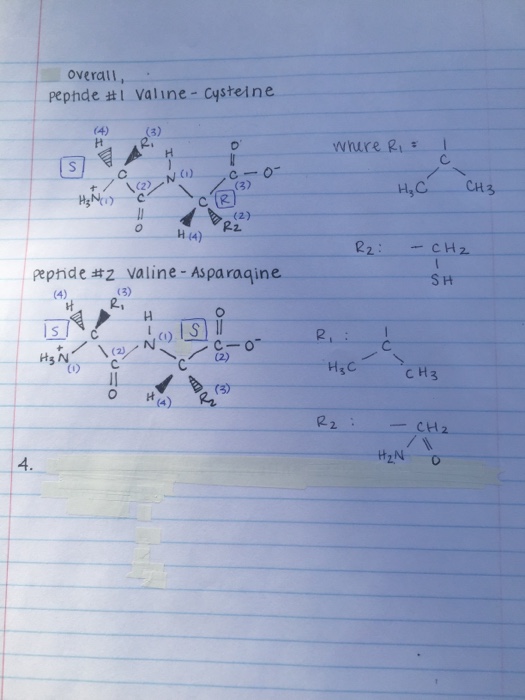 Overall,
Peptide #1 Valine - Cysteine
(4) (3)
H R1 H O
S C N (1) C - O-
(2) (3)
H3N+ (1) C C R
O H (4) R2 (2)
where R1 =
C
H3C CH3
R2: - CH2
SH
Peptide #2 Valine - Asparagine
(4) (3)
H R1 H O
S C N (1) S C - O-
(2) (2)
H3N+ (1) C C
O H (4) R2 (3)
R1 :
C
H3C CH3
R2 : - CH2
H2N O
4.